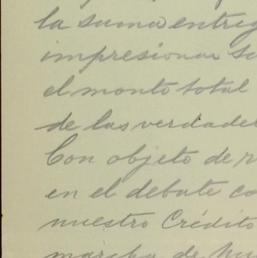 la suma entreg
impresionar su
el monto total
de las verdader
Con objeto de r
en el debate co
nuestro Crédito
marcha de nu